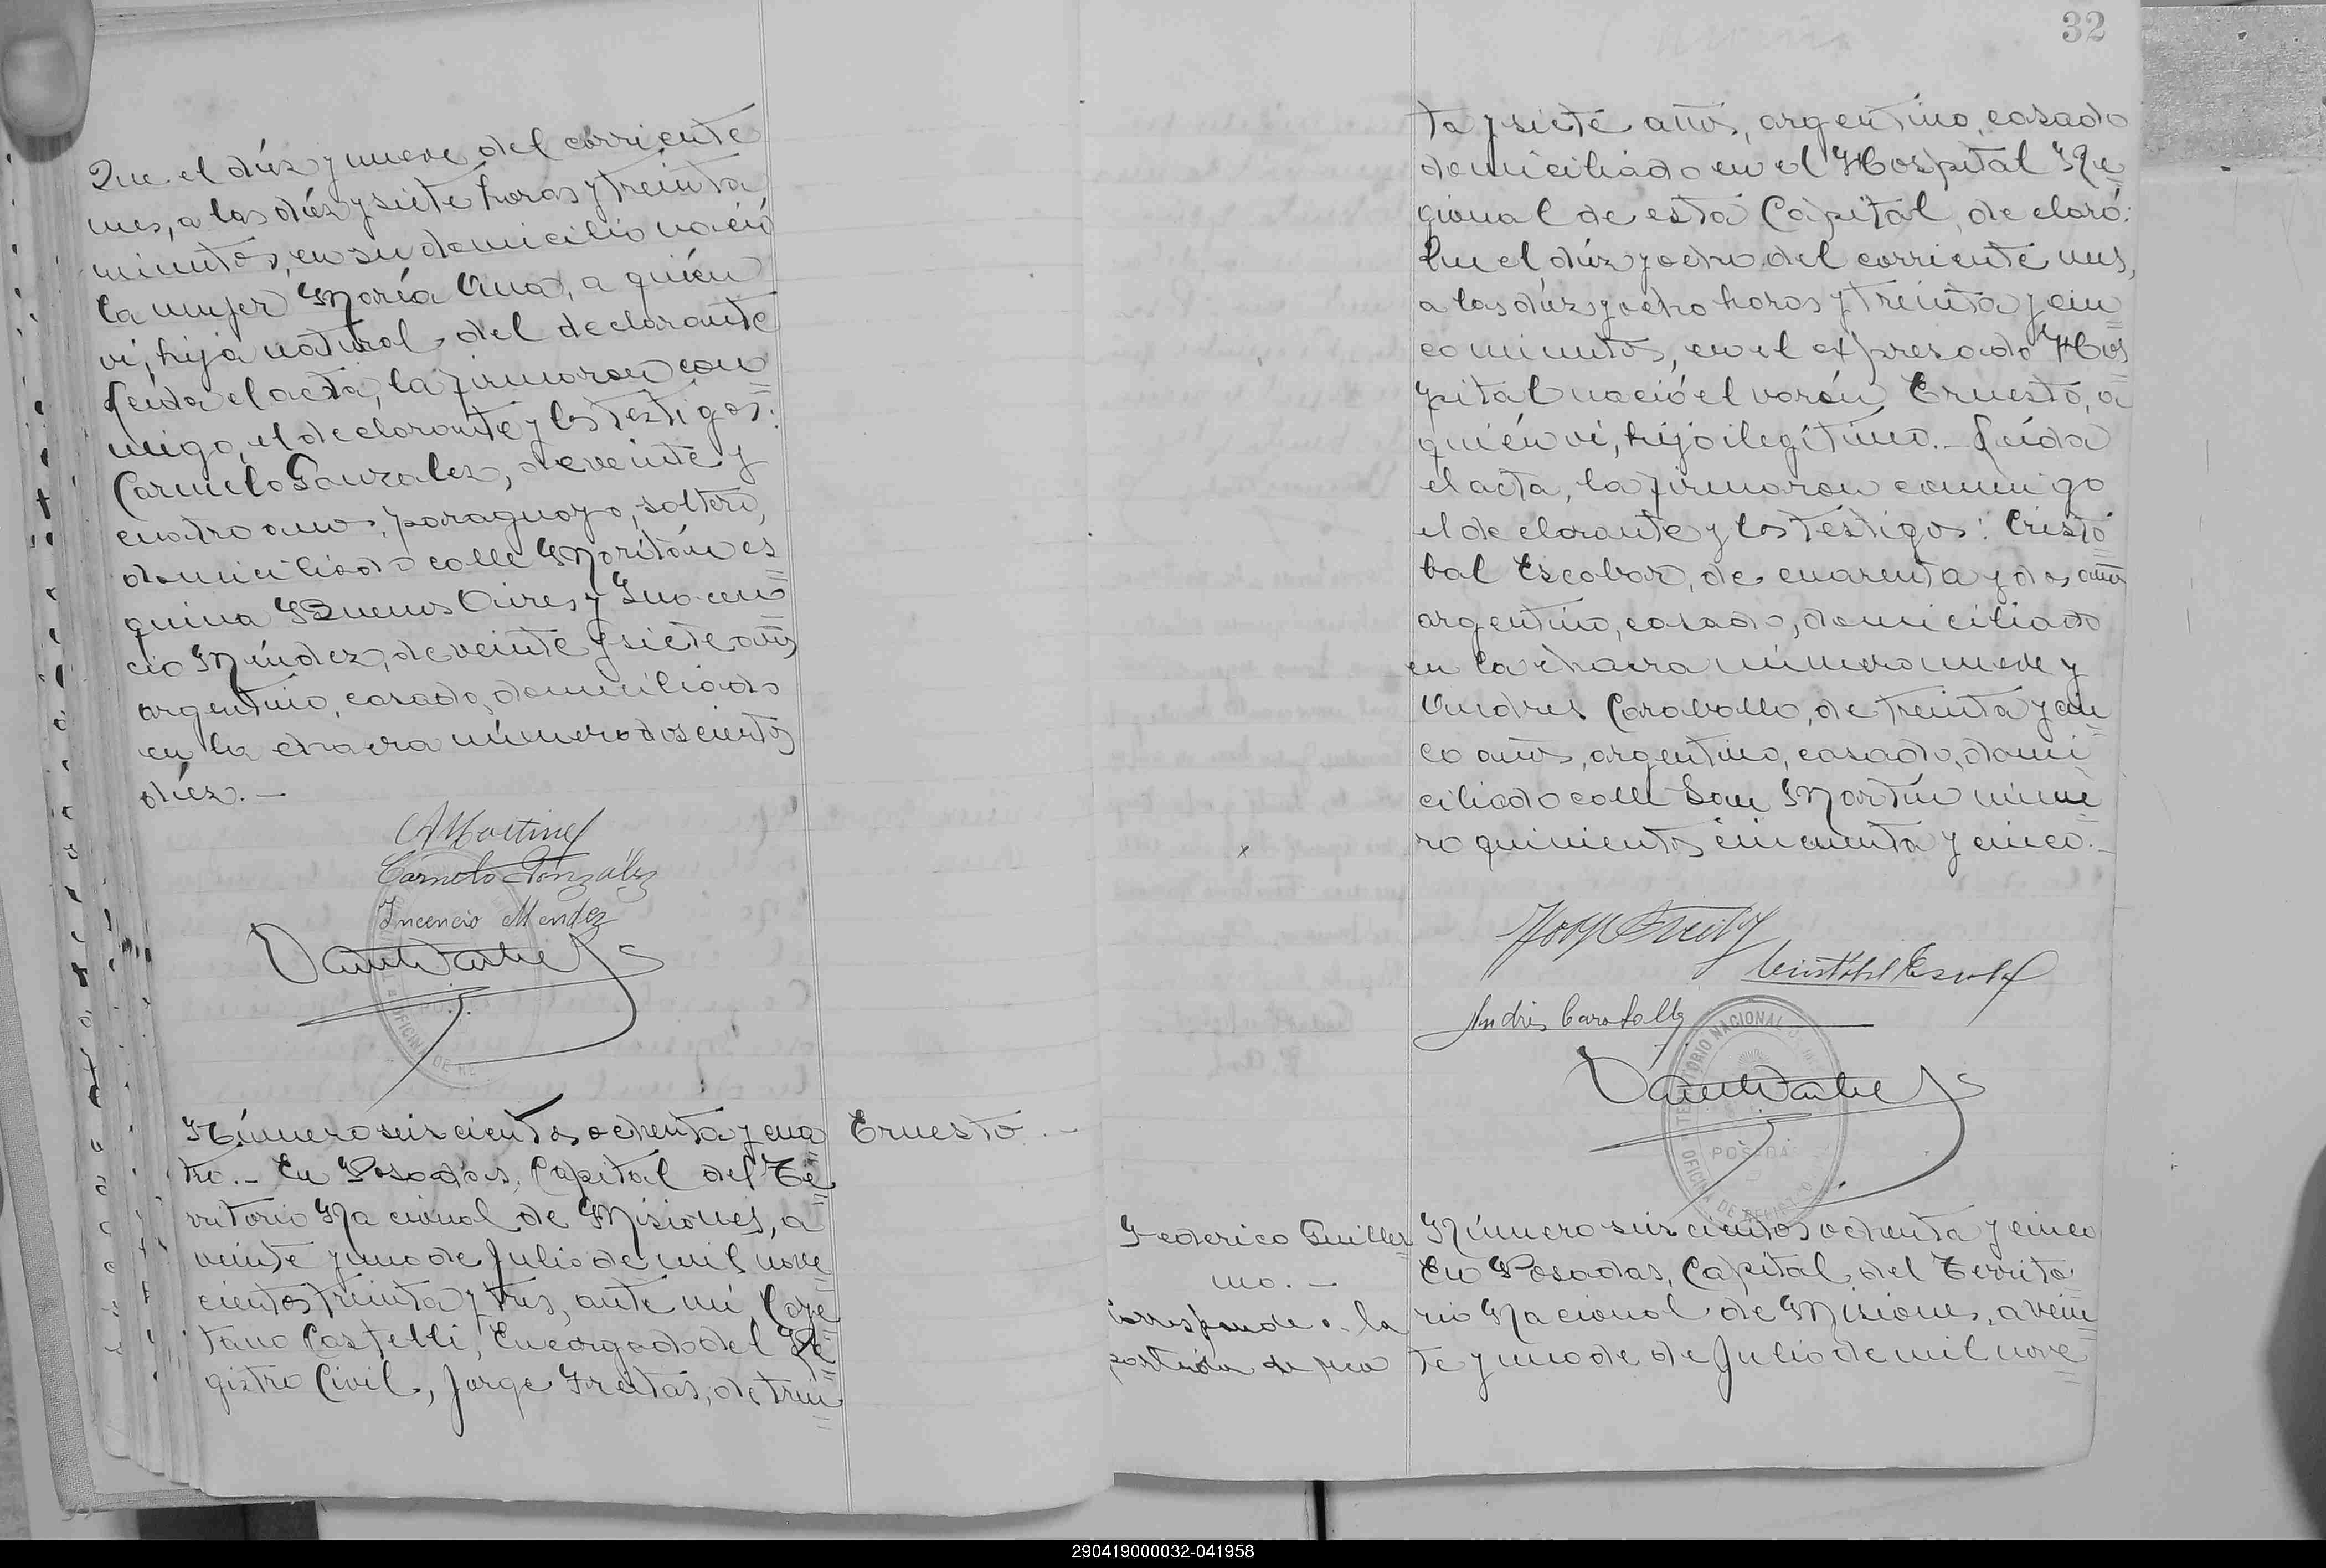 Que el diez y nueve del corriente
mes, a las diez y siete horas y treinta
minutos, en su domicilio nació
la mujer María Ana, a quién
vi, hija natural del declarante
Leída el acta, la firmaron con
migo, el declarante y los testigos:
Carmelo Gonzalez, de veinte y
cuatro años, paraguayo, soltero,
domiciliado calle Maritán es
quina Buenos Aires y Inocen
cio Méndez, de veinte y siete años
argentino, casado, domiciliado
en la chacra número doscientos
diez.—
Carmelo González
Inocencio Mendez
Número seiscientos ochenta y cua
tro.— En Posadas, Capital del Te
rritorio Nacional de Misiones, a
veinte y uno de Julio de mil nove
cientos treinta y tres, ante mí Caye
tano Castelli, Encargado del Re
gistro Civil, Jorge Freitas, de trein
Ernesto.—
32
ta y siete años, argentino, casado
domiciliado en el Hospital Re
gional de esta Capital, declaró:
Que el diez y ocho del corriente mes,
a las diez y ocho horas y treinta y cin
co minutos, en el expresado Hos
pital nació el varón Ernesto, a
quién vi, hijo ilegítimo.— Leída
el acta, la firmaron conmigo
el declarante y los testigos: Cristó
bal Escobar, de cuarenta y dos años
argentino, casado, domiciliado
en la chacra número nueve y
Andres Caraballo, de treinta y cin
co años, argentino, casado, domi
ciliado calle San Martín núme
ro quinientos cincuenta y cinco.—
Cristóbal Escobar
Andrés Caraballo
TERRITORIO NACIONAL
POSADAS
OFICINA DE REGISTRO
Federico Guiller
mo.—
Corresponde a la
partida de
Número seiscientos ochenta y cinco
En Posadas, Capital del Territo
rio Nacional de Misiones, a vein
te y uno de de Julio de mil nove
290419000032-041958